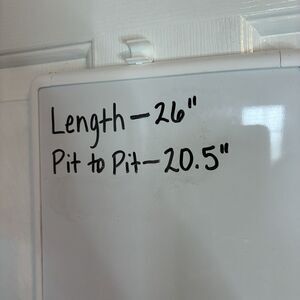 Length-26"
Pit to Pit-20.5"